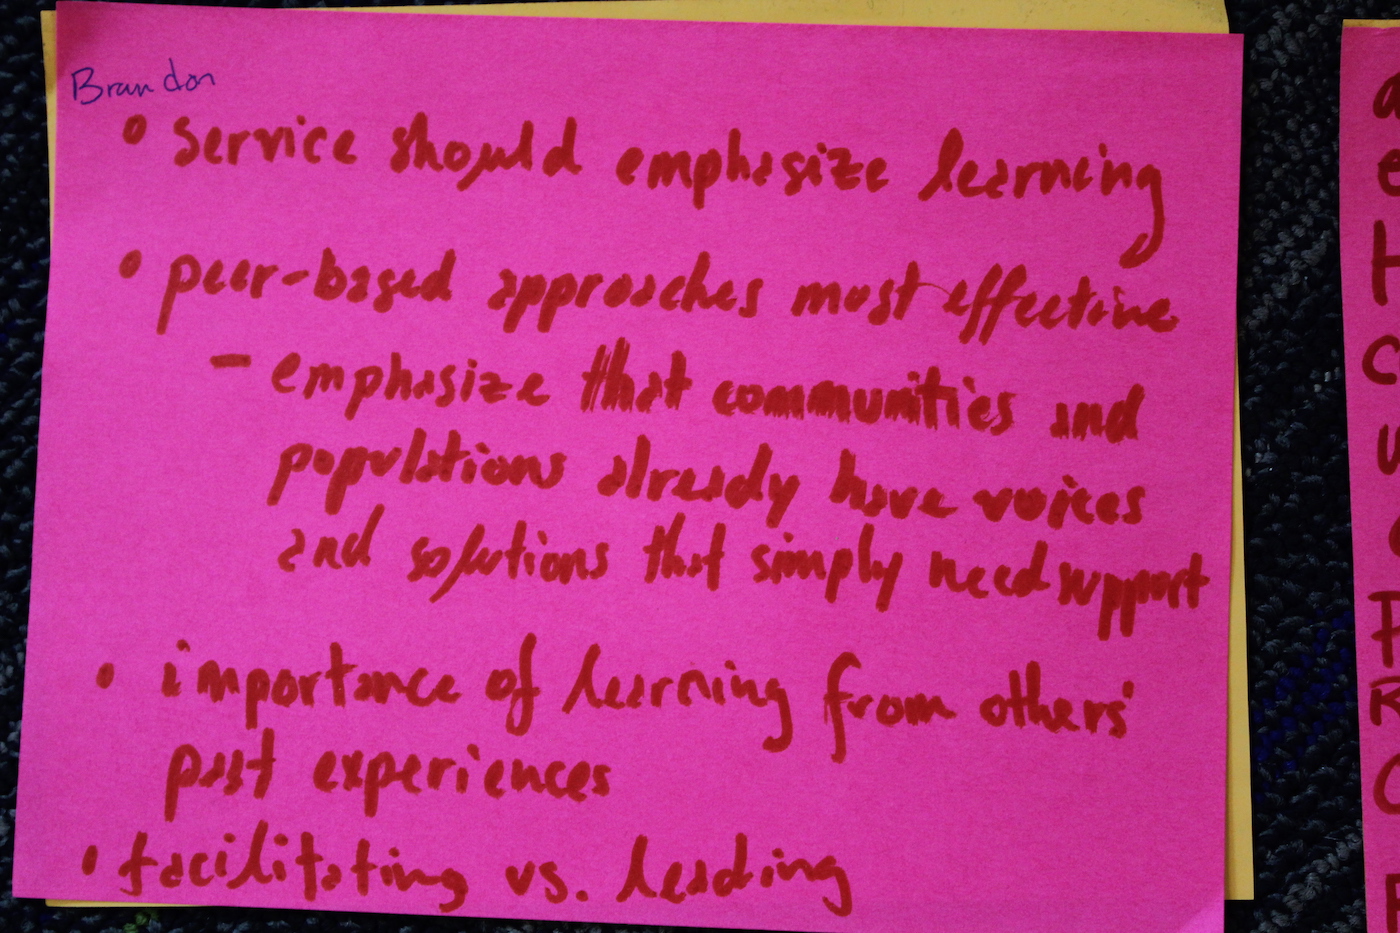 Brandon
• service should emphasize learning
• peer-based approaches most effective
- emphasize that communities and
populations already have voices
and solutions that simply need support
• importance of learning from others'
past experiences
• facilitating vs. leading